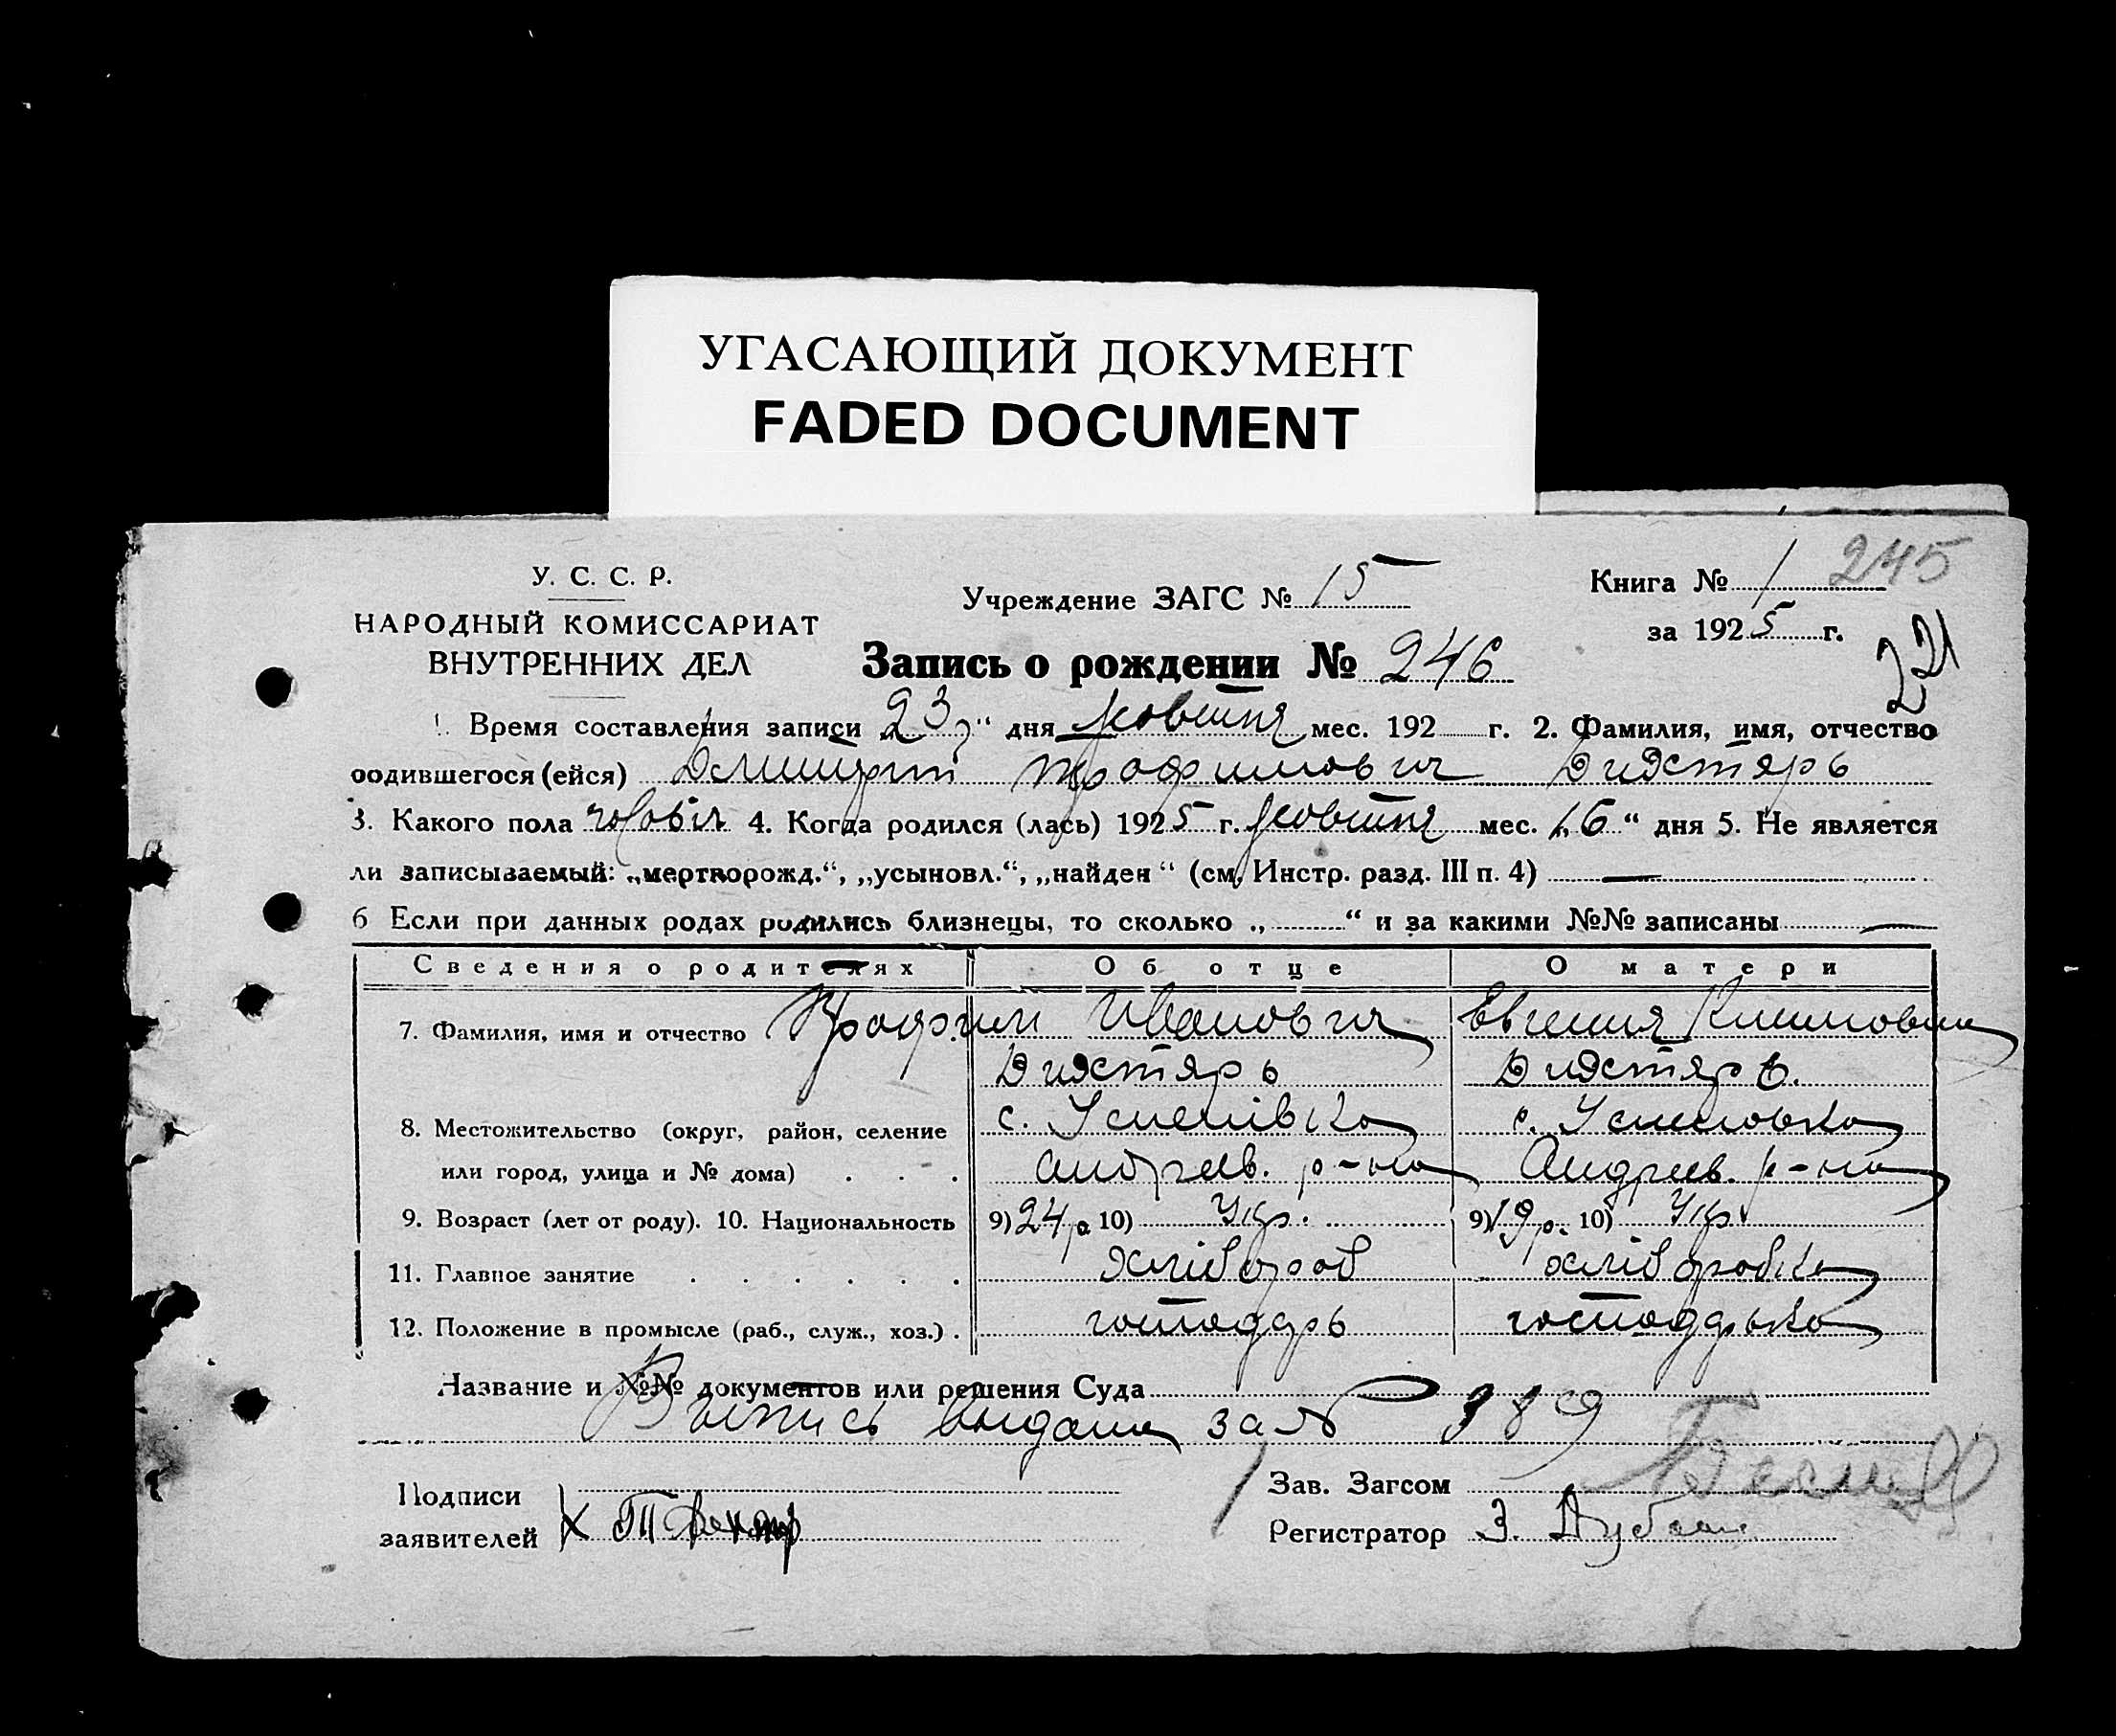 УГАСАЮЩИЙ ДОКУМЕНТ
FADED DOCUMENT
У. С. С. Р.
НАРОДНЫЙ КОМИССАРИАТ
ВНУТРЕННИХ ДЕЛ
Учреждение ЗАГС № 15
Книга № 1 245
за 1925 г.
221
Запись о рождении № 246
1. Время составления записи „23“ дня жовтня мес. 192 г. 2. Фамилия, имя, отчество
родившегося (ейся) Дмитрий Трофимович
3. Какого пола чоловіч 4. Когда родился (лась) 1925 г. жовтня мес. „16“ дня 5. Не является
ли записываемый: „мертворожд.“, „усыновл.“, „найден“ (см. Инстр. разд. III п. 4) —
6 Если при данных родах родились близнецы, то сколько „ “ и за какими №№ записаны —
Сведения о родителях Об отце О матери
7. Фамилия, имя и отчество Трофим Иванович Евгения Климовна
8. Местожительство (округ, район, селение
с. Успенівка с. Успеновка
или город, улица и № дома) . . . Андреев. р-на Андреев. р-на
9. Возраст (лет от роду). 10. Национальность 9) 24 р. 10) Укр. 9) 19 р. 10) Укр.
11. Главное занятие . . . . . . хлібороб хліборобка
12. Положение в промысле (раб., служ., хоз.) . господарь господарька
Название и №№ документов или решения Суда
Выпись выдана за № 389
Подписи
заявителей
Зав. Загсом
Регистратор З.